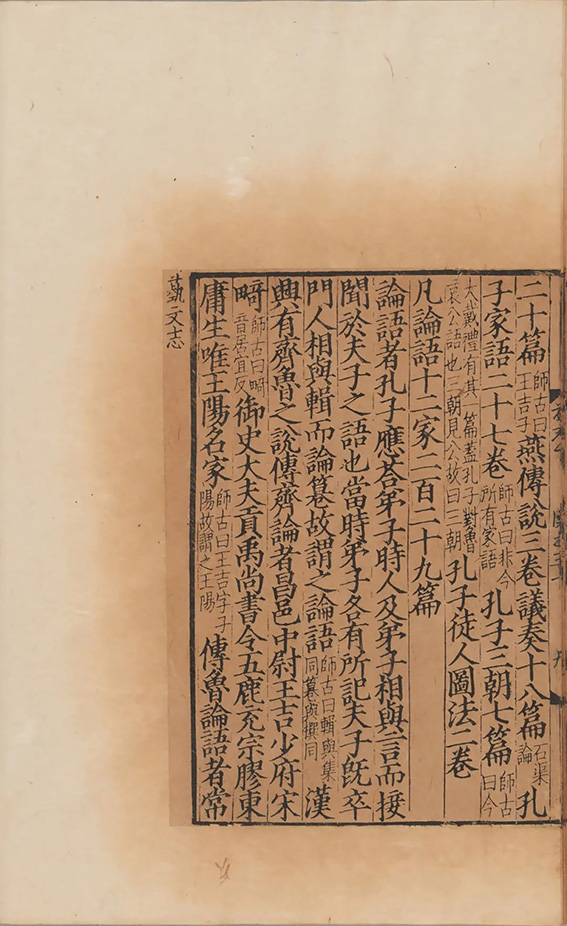 二十篇師古曰王吉子燕傳說三卷議奏十八篇石渠論孔
子家語二十七卷師古曰非今所有家語孔子三朝七篇師古曰今
大戴禮有其篇蓋孔子對魯哀公語也三朝見公故曰三朝孔子徒人圖法二卷
凡論語十二家二百二十九篇
論語者孔子應荅弟子時人及弟子相與言而接
聞於夫子之語也當時弟子各有所記夫子旣卒
門人相與輯而論篹故謂之論語師古曰輯與集同篹與撰同漢
興有齊魯之說傳齊論者昌邑中尉王吉少府宋
畸師古曰畸音居宜反御史大夫貢禹尚書令五鹿充宗膠東
庸生唯王陽名家師古曰王吉字子陽故謂之王陽傳魯論語者常
藝文志